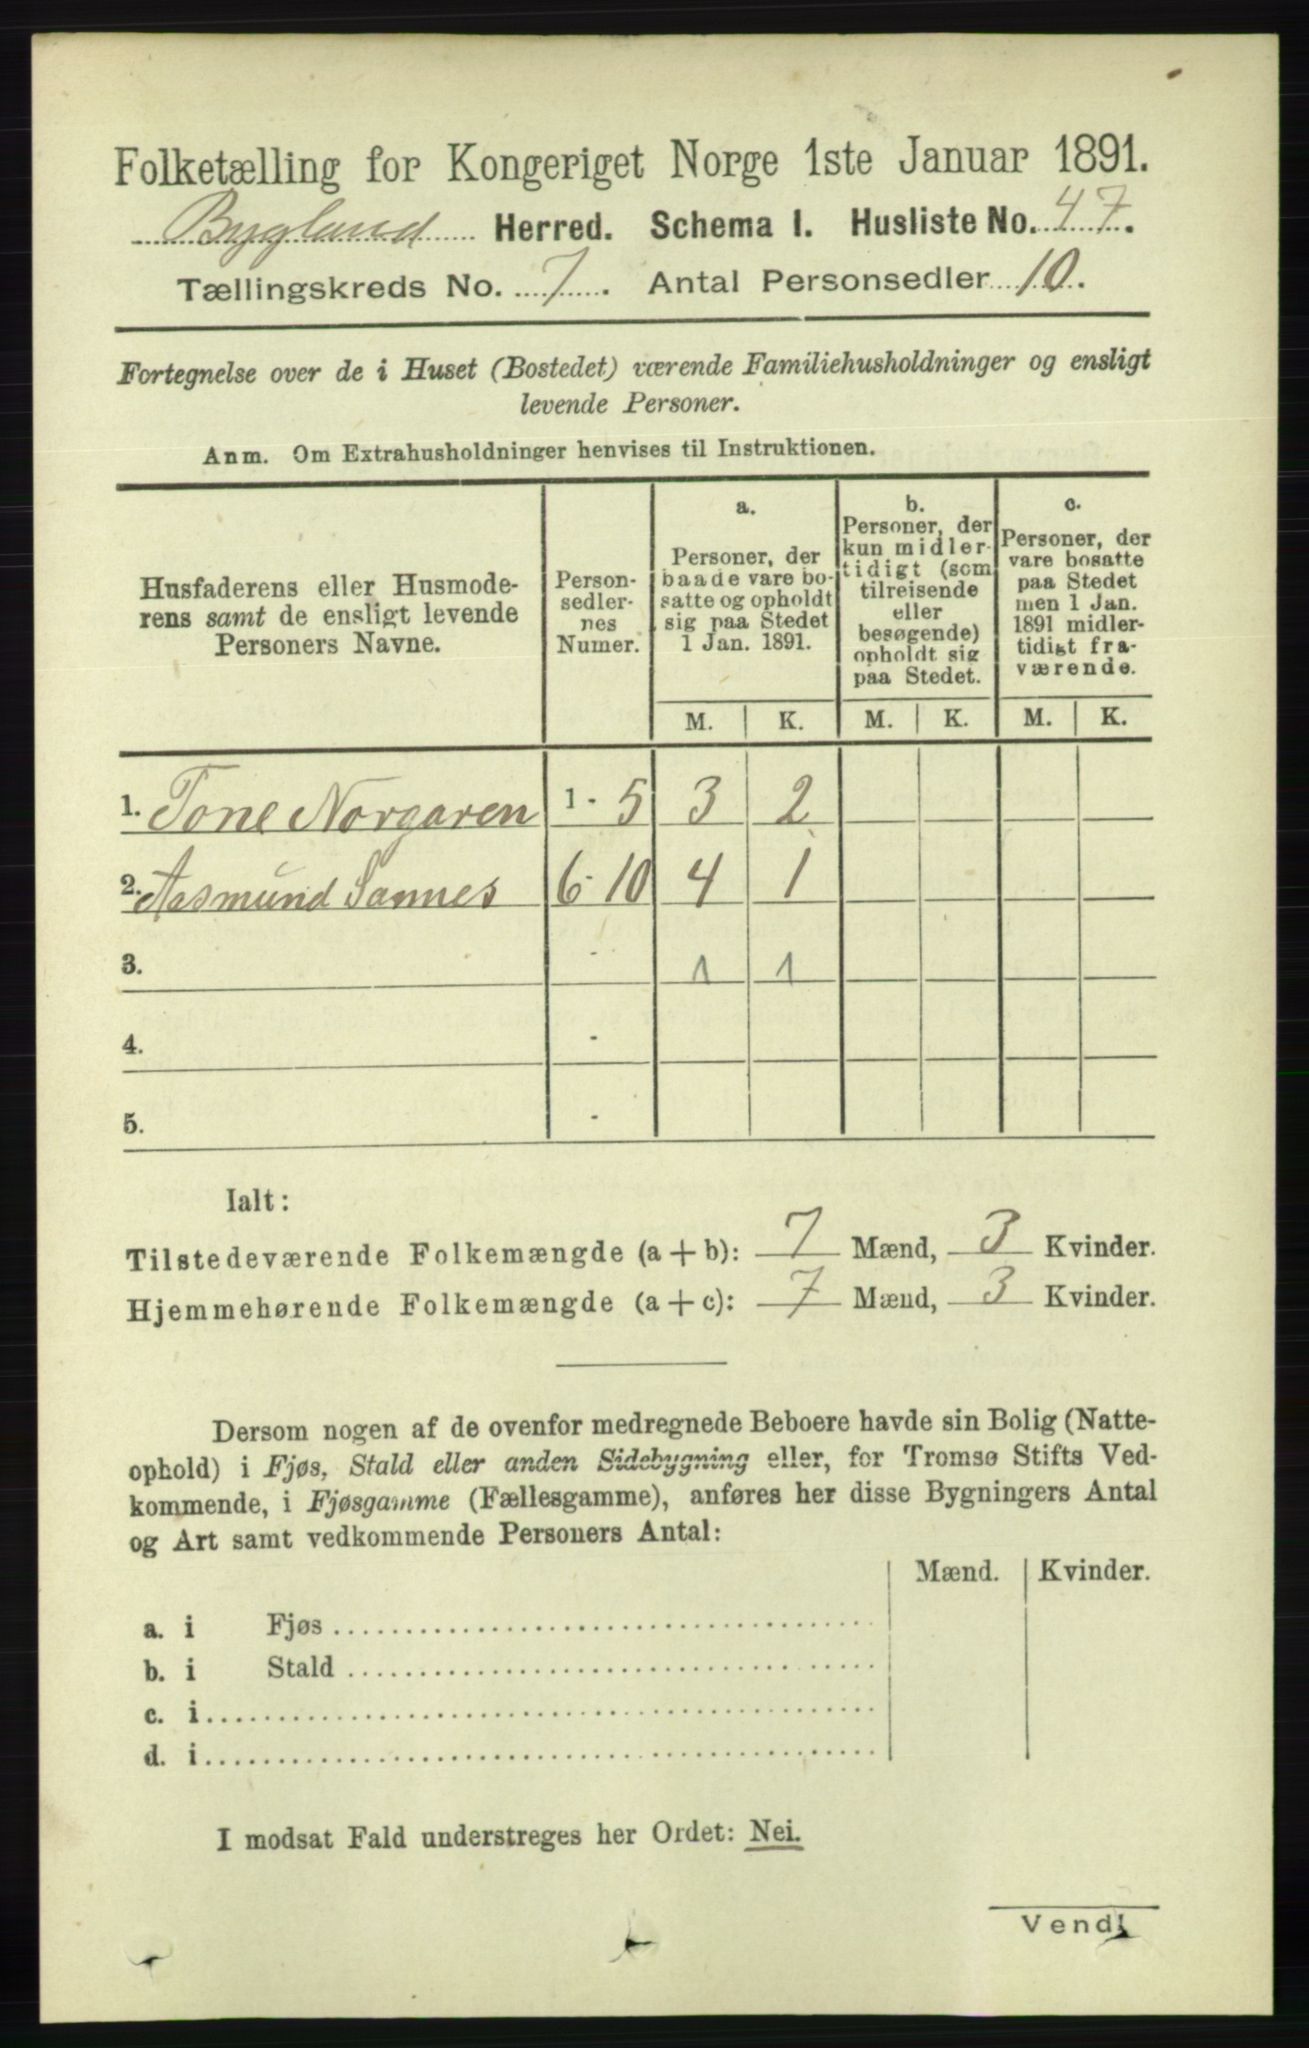 Folketælling for Kongeriget Norge 1ste Januar 1891.
Bygland Herred. Schema I. Husliste No. 47.
Tællingskreds No. 7. Antal Personsedler 10.
Fortegnelse over de i Huset (Bostedet) værende Familiehusholdninger og ensligt
levende Personer.
Anm. Om Extrahusholdninger henvises til Instruktionen.
Husfaderens eller Husmode-
rens samt de ensligt levende
Personers Navne.
Person-
sedler-
nes
Numer.
a.
Personer, der
baade vare bo-
satte og opholdt
sig paa Stedet
1 Jan. 1891.
b.
Personer, der
kun midler-
tidigt (som
tilreisende
eller
besøgende)
opholdt sig
paa Stedet.
c.
Personer, der
vare bosatte
paa Stedet
men 1 Jan.
1891 midler-
tidigt fra-
værende.
M. K. M. K. M. K.
1. Tone Norgaren 1 - 5 3 2
2. Aasmund Sannes 6 - 10 4 1
3. - 1 1
4. -
5. -
Ialt:
Tilstedeværende Folkemængde (a + b): 7 Mænd, 3 Kvinder.
Hjemmehørende Folkemængde (a + c): 7 Mænd, 3 Kvinder.
Dersom nogen af de ovenfor medregnede Beboere havde sin Bolig (Natte-
ophold) i Fjøs, Stald eller anden Sidebygning eller, for Tromsø Stifts Ved-
kommende, i Fjøsgamme (Fællesgamme), anføres her disse Bygningers Antal
og Art samt vedkommende Personers Antal:
Mænd. Kvinder.
a. i Fjøs
b. i Stald
c. i
d. i
I modsat Fald understreges her Ordet: Nei.
Vend!